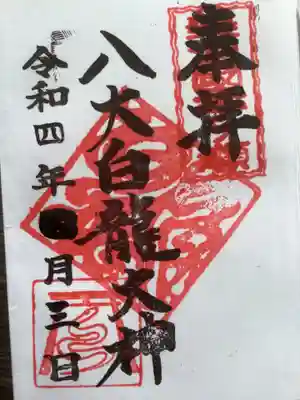 奉拝
八大白龍大神
令和四年
月三日